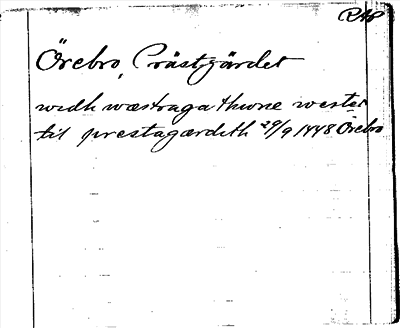 RAP
Örebro, Prästgärdet
widh wæstraga thwne wester
til prestagærdeth 29/9 1448 Örebro